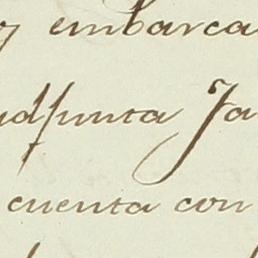 y embarca
adjunta Fa
cuenta con